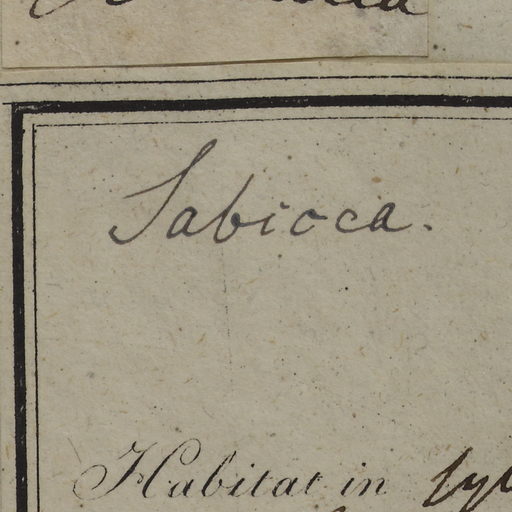 Sabioca.
Habitat in